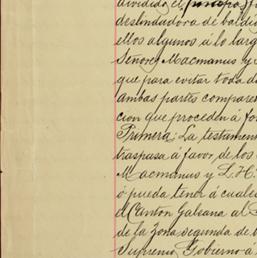 dividido el
deslindadora de baldío
ellos algunos á lo larg
Señores Macmanus y
que para evitar toda d
ambas partes compare
cion que proceden á fo
Primera: La testamen
traspasa á favor de los
Macmanus y L. H.
ó pueda tener á cuales
el Canton Galeana al
de la zona segunda de
Supremo Gobierno á